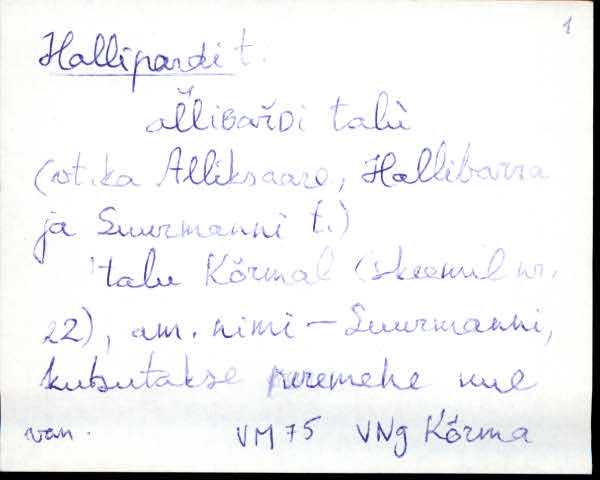 1
Hallipardi t.
allibarDi talù
(vt. ka Alliksaare, Hallibarra
ja Suurmanni t.)
talu Kõrmal (skeemil nr.
22), am. nimi – Suurmanni,
kutsutakse peremehe
van. VM 75 VNg Kõrma